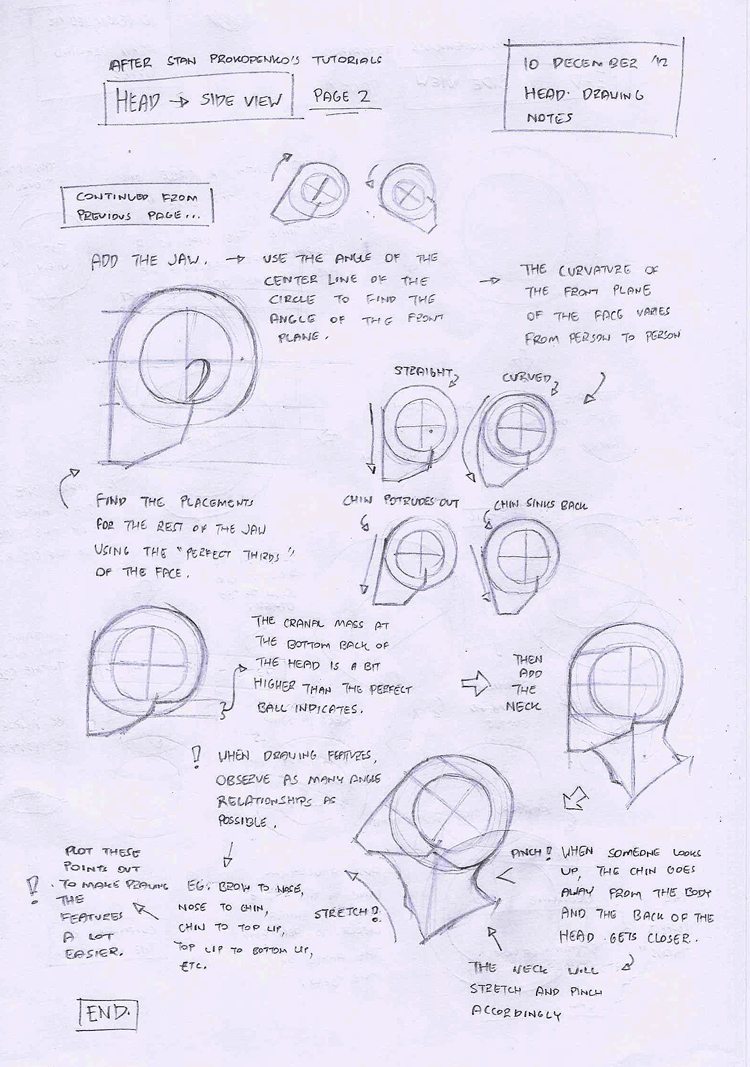 AFTER STAN PROKOPENKO'S TUTORIALS
HEAD → SIDE VIEW
PAGE 2
10 DECEMBER '12
HEAD DRAWING
NOTES
CONTINUED FROM
PREVIOUS PAGE...
ADD THE JAW. →
USE THE ANGLE OF THE
CENTER LINE OF THE
CIRCLE TO FIND THE
ANGLE OF THE FRONT
PLANE.
→ THE CURVATURE OF
THE FRONT PLANE
OF THE FACE VARIES
FROM PERSON TO PERSON
STRAIGHT
CURVED
CHIN POTRUDES OUT
CHIN SINKS BACK
FIND THE PLACEMENTS
FOR THE REST OF THE JAW
USING THE "PERFECT THIRDS"
OF THE FACE.
THE CRANAL MASS AT
THE BOTTOM BACK OF
THE HEAD IS A BIT
HIGHER THAN THE PERFECT
BALL INDICATES.
THEN
ADD
THE
NECK
! WHEN DRAWING FEATURES,
OBSERVE AS MANY ANGLE
RELATIONSHIPS AS
POSSIBLE.
EG. BROW TO NOSE,
NOSE TO CHIN,
CHIN TO TOP LIP,
TOP LIP TO BOTTOM LIP,
ETC.
PLOT THESE
POINTS OUT
! TO MAKE DRAWING
THE
FEATURES
A LOT
EASIER.
STRETCH!
PINCH!
WHEN SOMEONE LOOKS
UP, THE CHIN GOES
AWAY FROM THE BODY
AND THE BACK OF THE
HEAD GETS CLOSER.
THE NECK WILL
STRETCH AND PINCH
ACCORDINGLY
END.